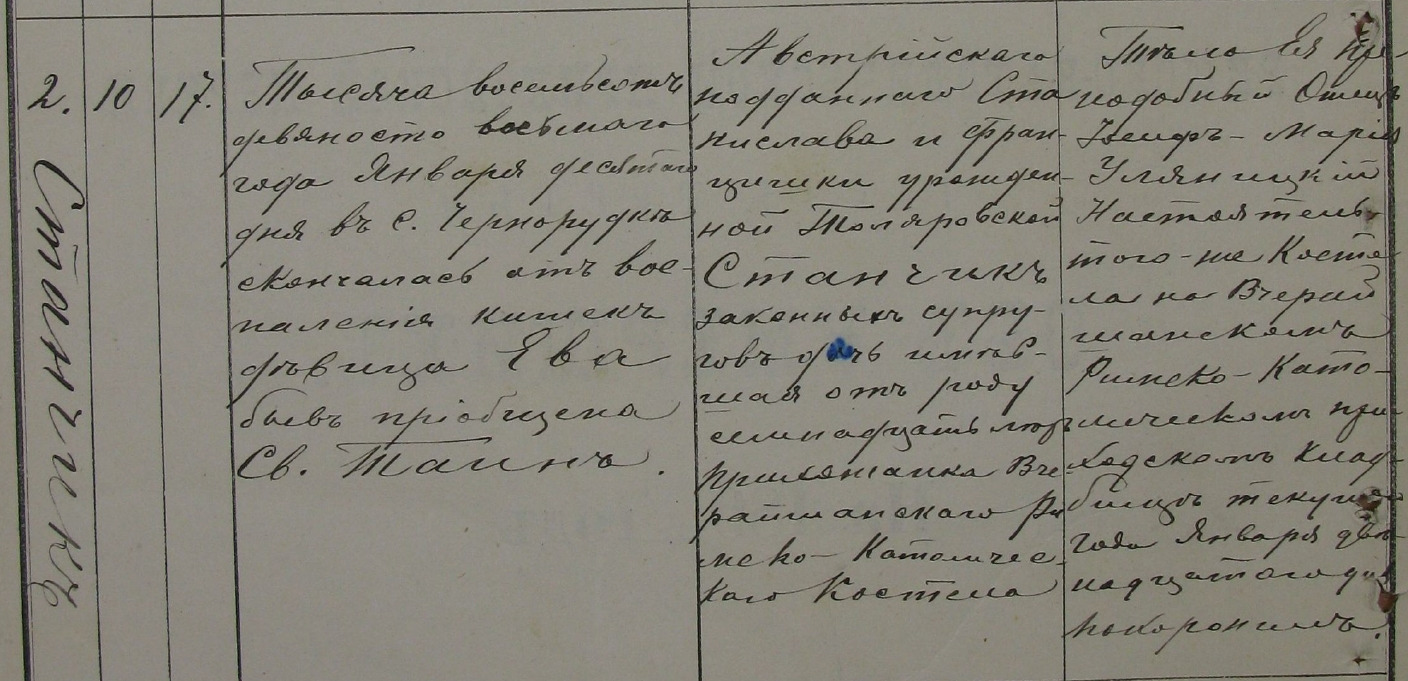 2.
10
17.
Станчикъ
Тысяча восемьсотъ
девяносто восьмаго
года Января десятаго
дня въ с. Чернорудкѣ
скончалась отъ вос-
паленія кишекъ
дѣвица Ева
бывъ пріобщена
Св. Таинъ.
Австрійскаго
подданнаго Ста
нислава и Фран-
цишки урожден-
ной Толяровской
Станчикъ
законныхъ супру-
говъ дочь имѣв-
шая отъ роду
семнадцать лѣтъ
прихожанка Вче-
райшанскаго Ри
мско-Католичес-
каго Костела
Тѣло Ея Пре-
подобный Отецъ
Іосифъ-Марія
Уляницкій
Настоятель
того-же Косте
ла на Вчерай
шанскомъ
Римско-Като-
лическомъ при-
ходскомъ Клад-
бищѣ текущаго
года Января двѣ-
надцатаго дня
похоронилъ.